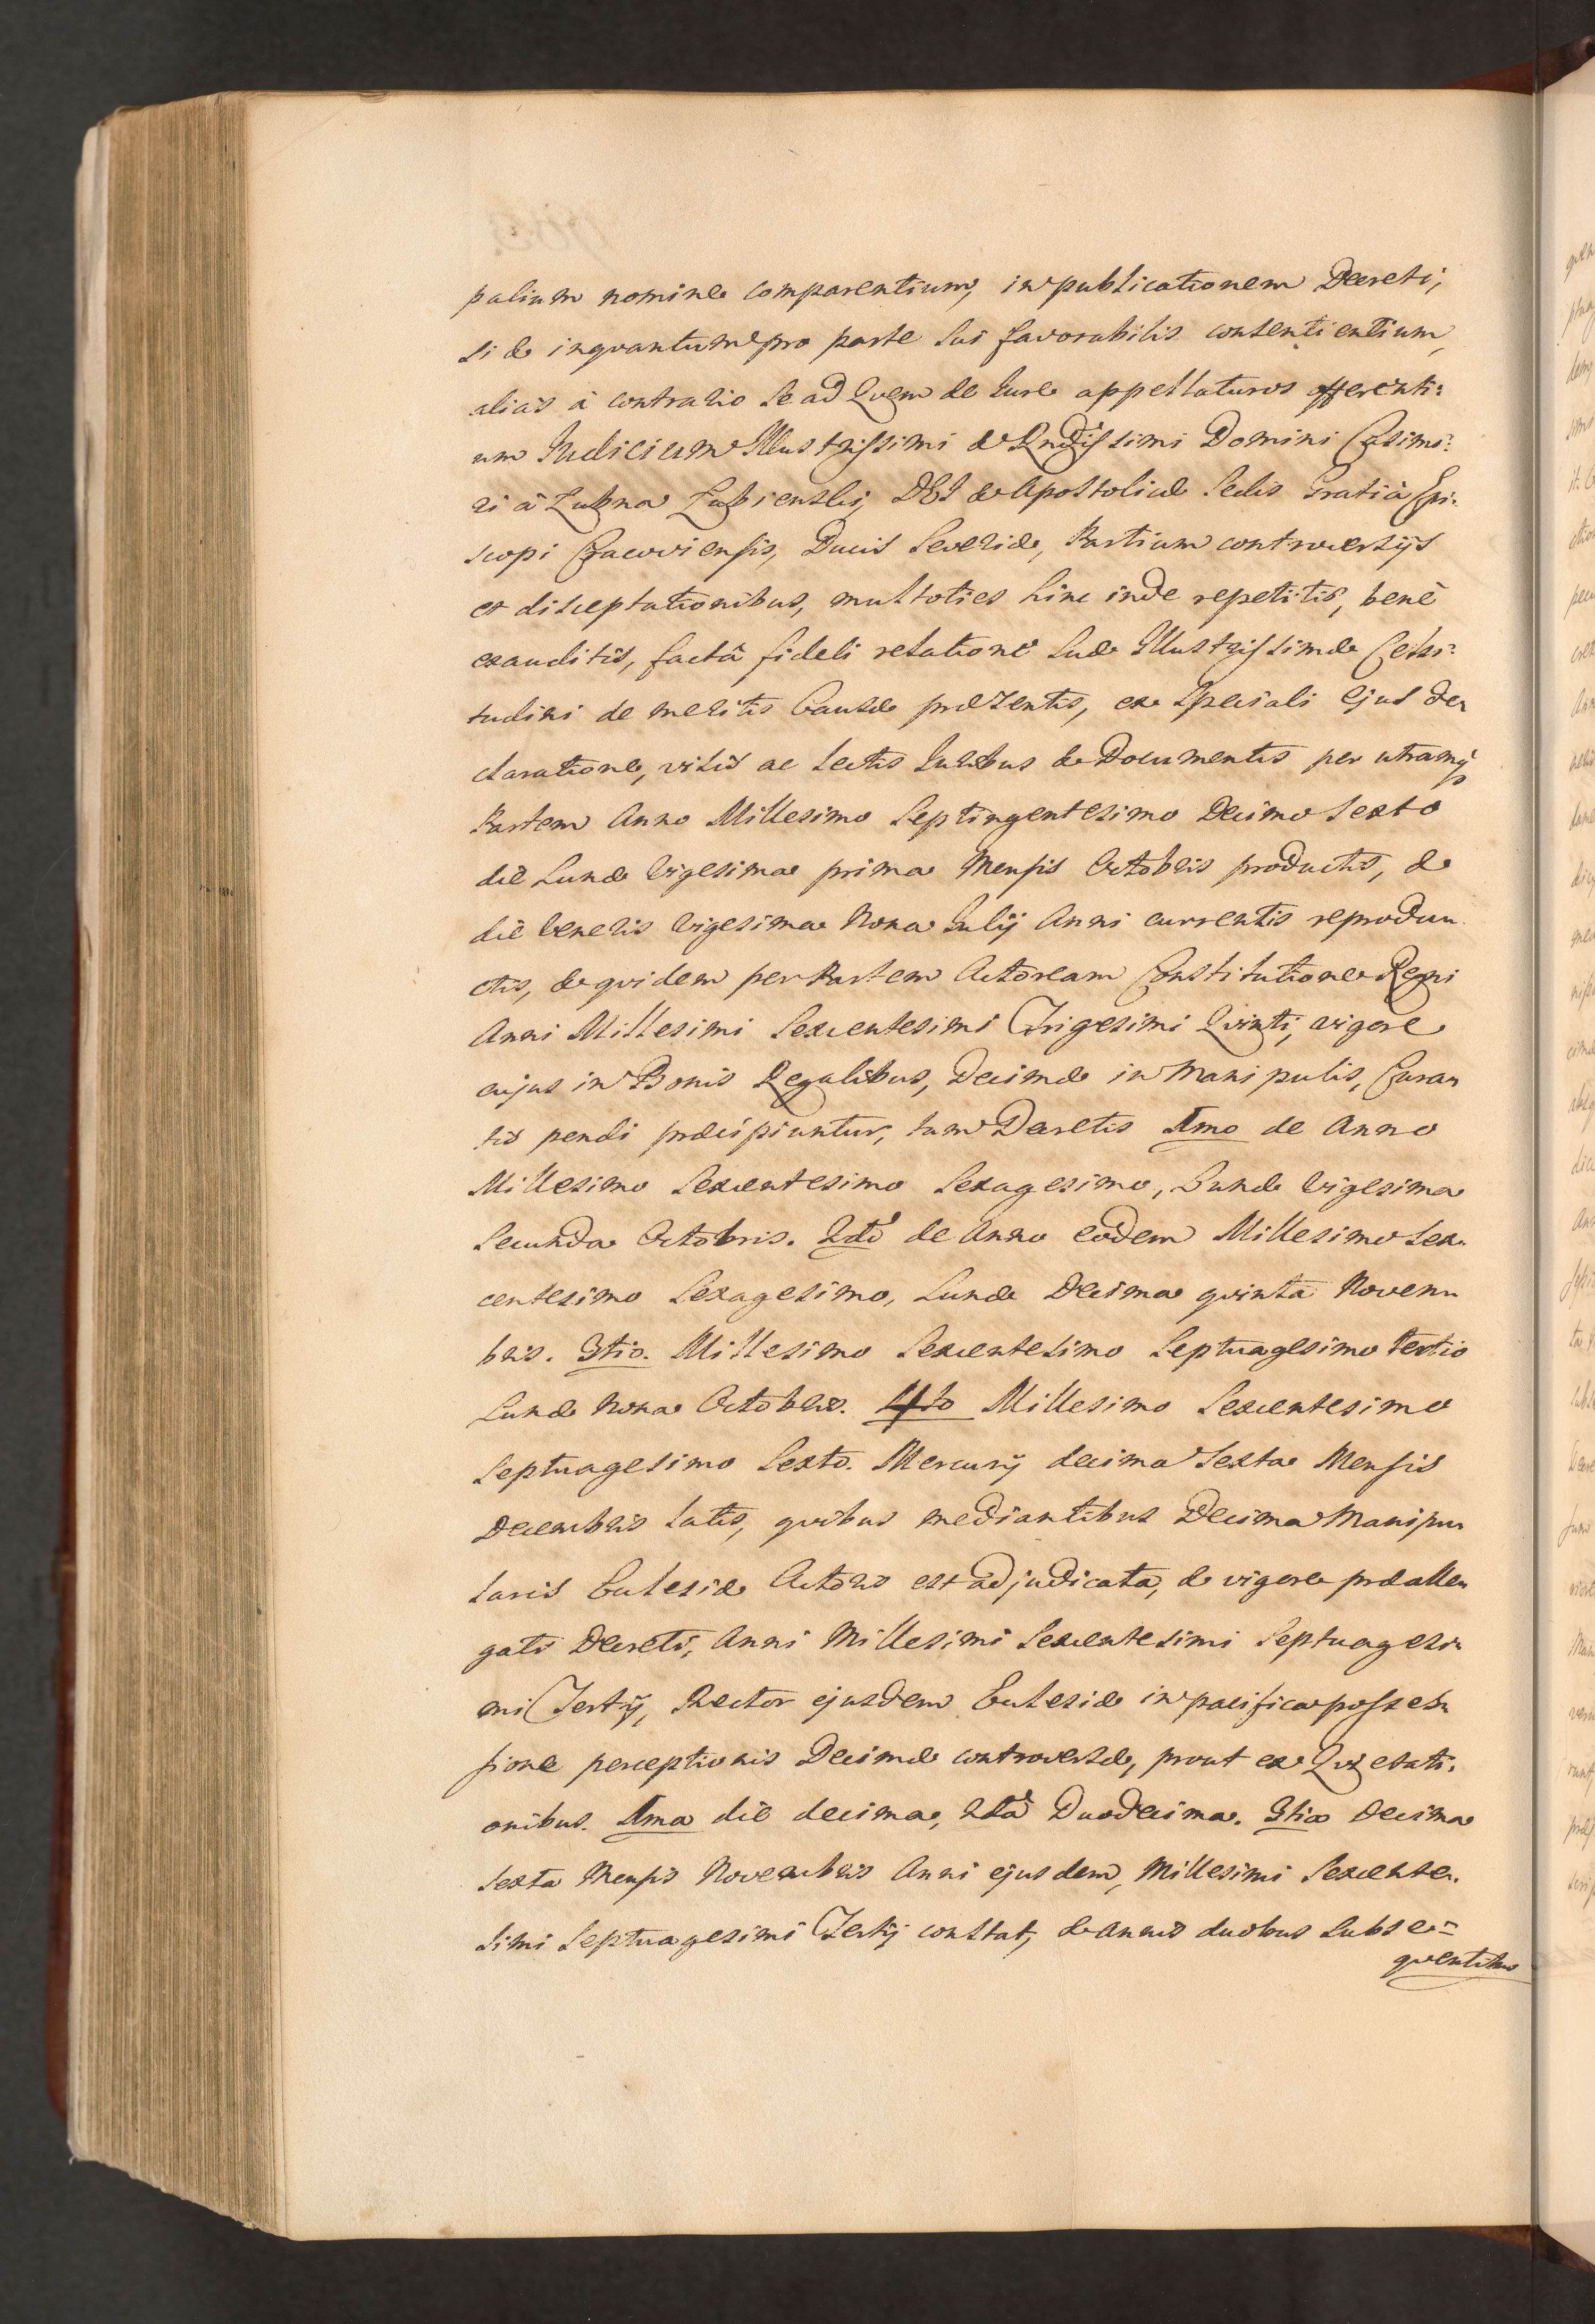 palium nomine comparentium, in publicationem Decreti,
si & inqvantum pro parte sui favorabilis consentientium,
alias à contrario se ad Qvem de Iure appellaturos offerenti:
um Iudicium Illustrissimi & Rndissimi Domini Casimi:
ri à Łubna Łubienski, DEI & Apostolicæ Sedis Gratiâ Epi:
scopi Cracoviensis, Ducis Severiæ, Partium controversijs
et disceptationibus, multoties hinc inde repetitis, benè
exauditis, factâ fideli relatione Suæ Illustrissimæ Celsi:
tudini de meritis Causæ præsentis, ex speciali ejus de„
claratione, visis ac lectis Iuribus & Documentis per utramq;
Partem Anno Millesimo Septingentesimo Decimo Sexto
die Lunæ Vigesima prima Mensis Octobris productis, &
die Veneris Vigesima Nona Iulij Anni currentis reprodu„
ctis, & qvidem per Partem Actoream Constitutione Regni
Anni Millesimi Sexcentesimi Trigesimi Qvinti, vigore
cujus in Bonis Regalibus, Decimæ in Manipulis, Cura„
tis pendi præcipiuntur, tum Decretis 1mo de Anno
Millesimo Sexcentesimo Sexagesimo, Lunæ Vigesima
Secunda Octobris. 2do de Anno eodem Millesimo Sex„
centesimo Sexagesimo, Lunæ Decima qvinta Novem„
bris. 3tio. Millesimo Sexcentesimo Septuagesimo tertio
Lunæ Nona Octobris. 4to Millesimo Sexcentesimo
Septuagesimo Sexto. Mercurij decima Sexta Mensis
Decembris latis, qvibus mediantibus Decima Manipu„
laris Ecclesiæ Actoris est adjudicata, & vigore prælle„
gati Decreti, Anni Millesimi Sexcentesimi Septuagesi„
mi Tertij, Rector ejusdem Ecclesiæ in pacifica posses„
sione perceptionis Decimæ controversæ, prout ex Qvietati„
onibus. 1ma die decima, 2da Duodecima. 3tia decima
Sexta Mensis Novembris Anni ejusdem, Millesimi Sexcente„
simi Septuagesimi Tertij constat, & annis duobus subse„
qventibus